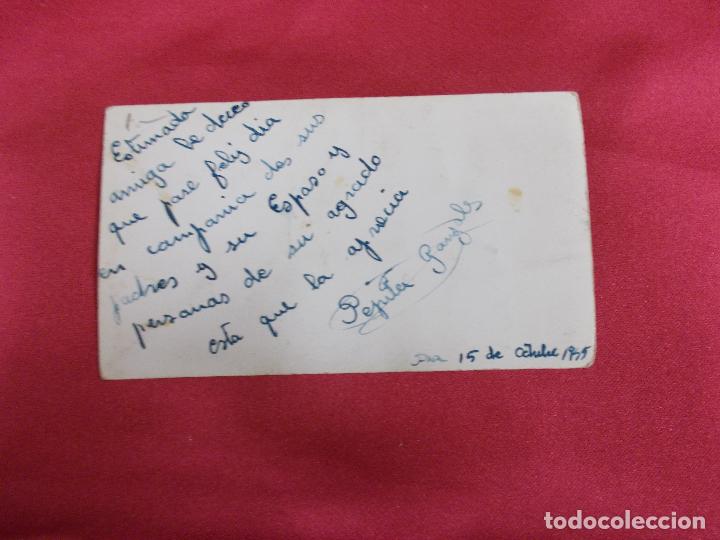 1.-
Estimada
amiga le deceo
que pase feliz dia
en campania des sus
padres y su Espaso y
personas de su agrado
esta que la aprecia
Pepita
15 de octubre 1955
todocoleccion.net